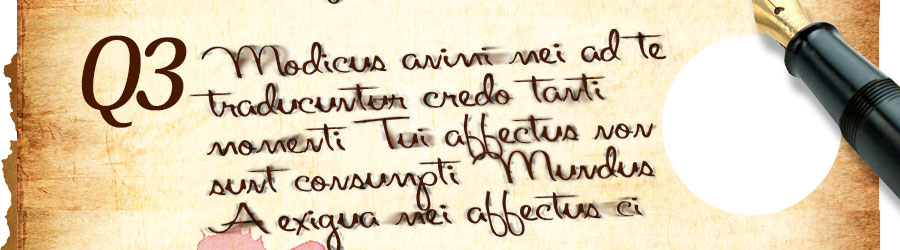 Q3
Modicus animi mei ad te
traducuntur credo tanti
momenti Tui affectus non
sunt consumpti Mundus
A exigua mei affectus ci